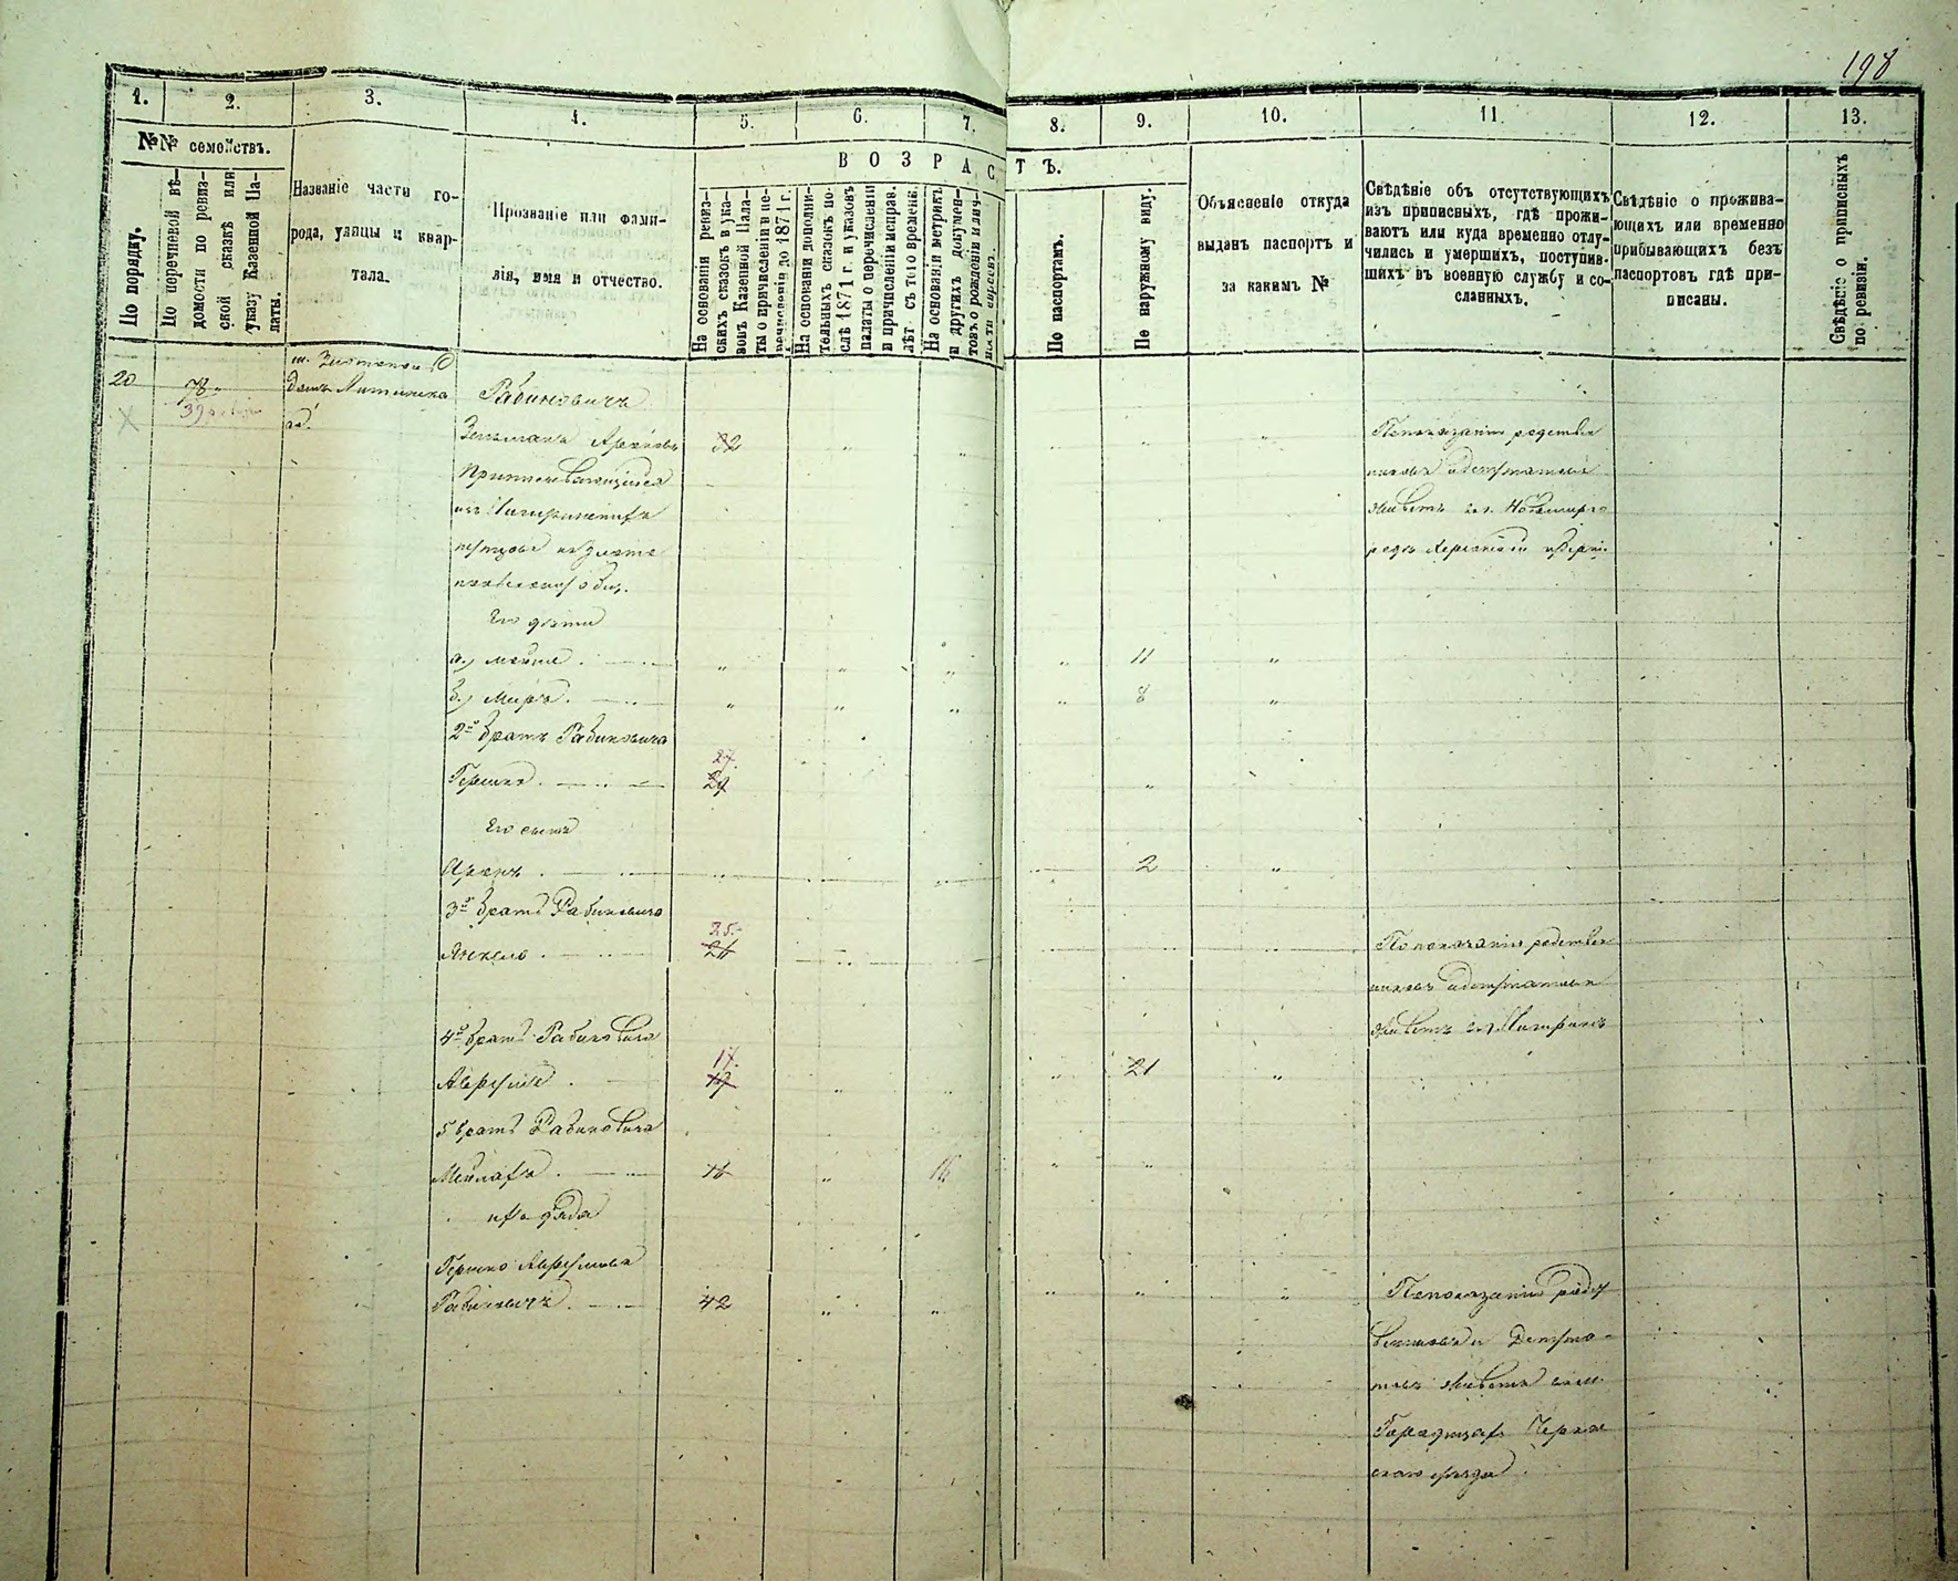 198
1.
2.
3.
4.
5.
6.
7.
8.
9.
10.
11.
12.
13.
№№ семействъ.
В О З Р А С Т Ъ.
По порядку.
По перечневой вѣ-
домости по ревиз-
ской сказкѣ или
указу Казенной Па-
латы.
Названіе части го-
рода, улицы и квар-
тала.
Прозваніе или фами-
лія, имя и отчество.
На основаніи ревиз-
скихъ сказокъ и ука-
зовъ Казенной Пала-
ты о причисленіи и пе-
речисленіи до 1871 г.
На основаніи дополни-
тельныхъ сказокъ по-
слѣ 1871 г. и указовъ
палаты о перечисленіи
и причисленіи исправ.
лѣт. съ того времени.
На основаніи метрикъ
и другихъ докумен-
товъ о рожденіи и лич-
ности евреевъ.
По паспортамъ.
По наружному виду.
Объясненіе откуда
выданъ паспортъ и
за какимъ №
Свѣдѣніе объ отсутствующихъ
изъ приписныхъ, гдѣ прожи-
ваютъ или куда временно отлу-
чились и умершихъ, поступив-
шихъ въ военную службу и со-
сланныхъ.
Свѣдѣніе о прожива-
ющихъ или временно
прибывающихъ безъ
паспортовъ гдѣ при-
писаны.
Свѣдѣніе о приписныхъ
по ревизіи.
20
78
39
домъ
Рабиновичъ
32
По показанію родствен
никовъ и депутатовъ
живетъ въ г. Новомирго
родѣ Херсонской губерні
Его дѣти
а.) 11
б.) Миръ. 8
2й братъ Рабиновича
27.
Гершко. 29
Его сынъ
Аронъ. 2
3й братъ Рабиновича
25.
Янкель. 21
По показанію родствен
никовъ и депутатовъ
живетъ въ г. Чигиринѣ
4й братъ Рабиновича
17.
Аврумъ. 19 21
5 братъ Рабиновича
16 16
ихъ дядя
Гершко Аврумовъ
Рабиновичъ. 42
По показанію родст
венниковъ и Депута-
товъ живетъ въ м.
Городищахъ Черкас
скаго уѣзда.